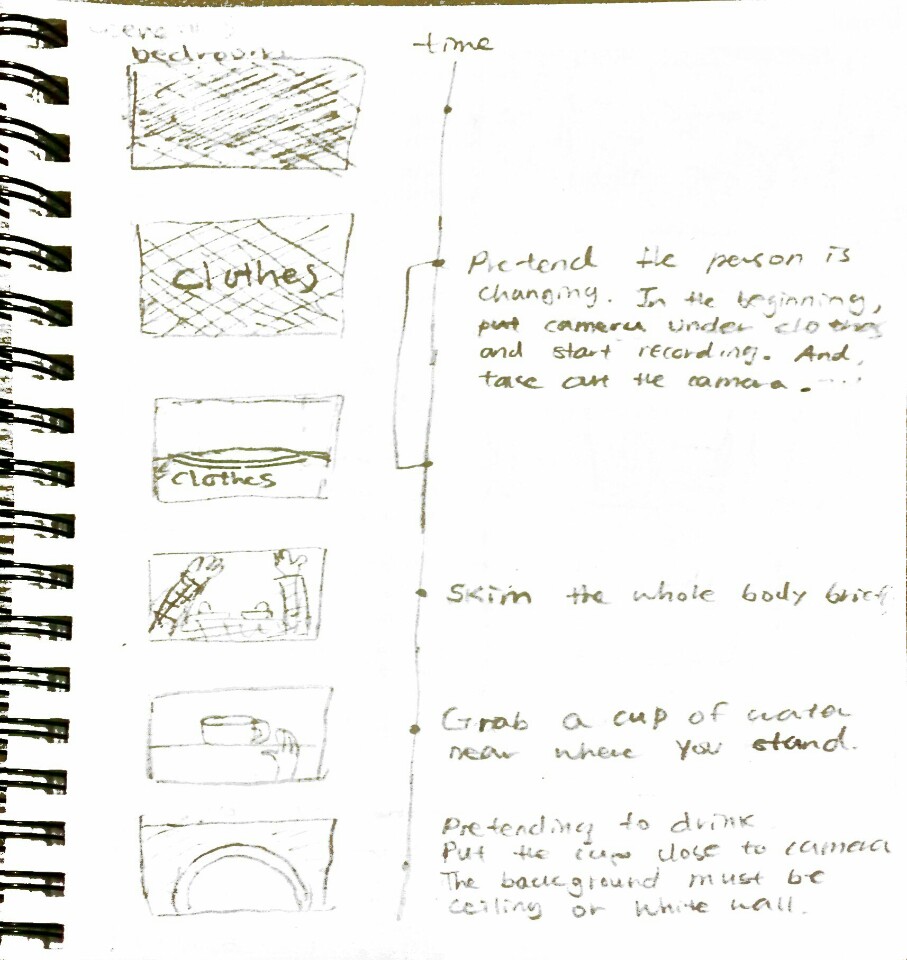 bedroom
time
Clothes
Pretend the person is
changing. In the beginning,
put camera under clothes
and start recording. And,
take out the camera.....
clothes
Skim the whole body
Grab a cup of water
near where you stand.
Pretending to drink
Put the cup close to camera
The background must be
ceiling or white wall.